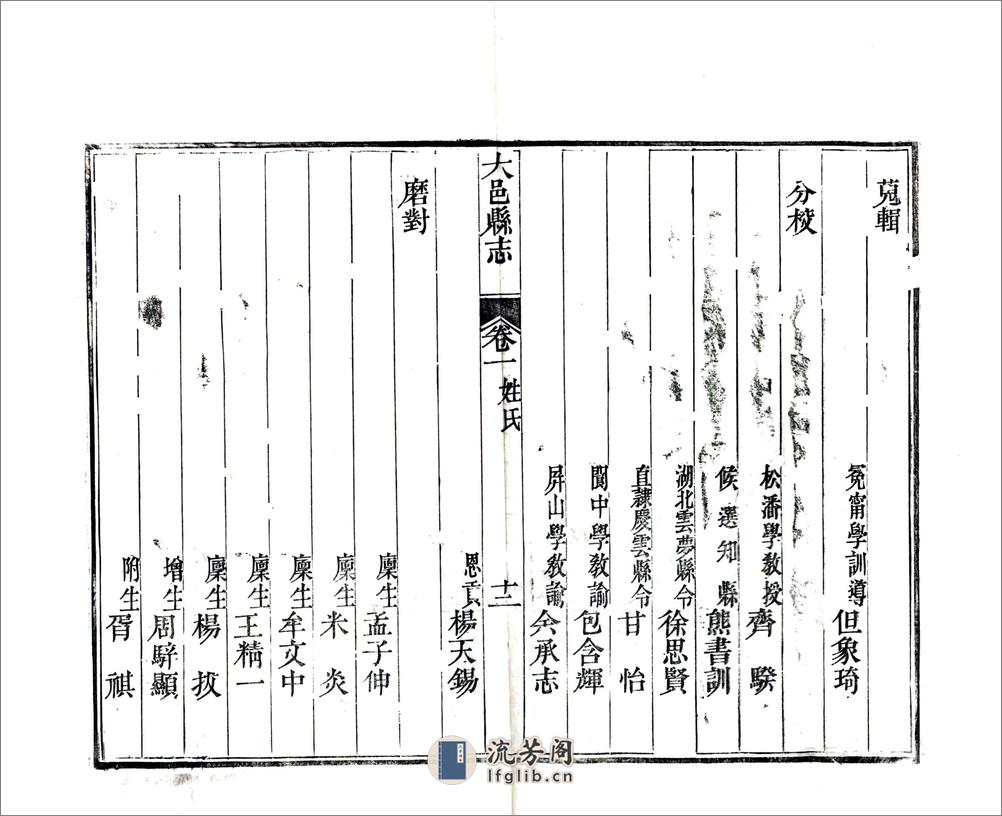 蒐輯
冕甯學訓導但象琦
分校
松潘學教授齊騤
候選知縣熊書訓
湖北雲夢縣令徐思賢
直隸慶雲縣令甘怡
閬中學教諭包含輝
屏山學教諭余承志
大邑縣志 卷一 姓氏 十二
恩貢楊天錫
磨對
廩生孟子伸
廩生米炎
廩生牟文中
廩生王精一
廩生楊拔
增生周騂顯
附生胥祺
流芳阁
lfglib.cn